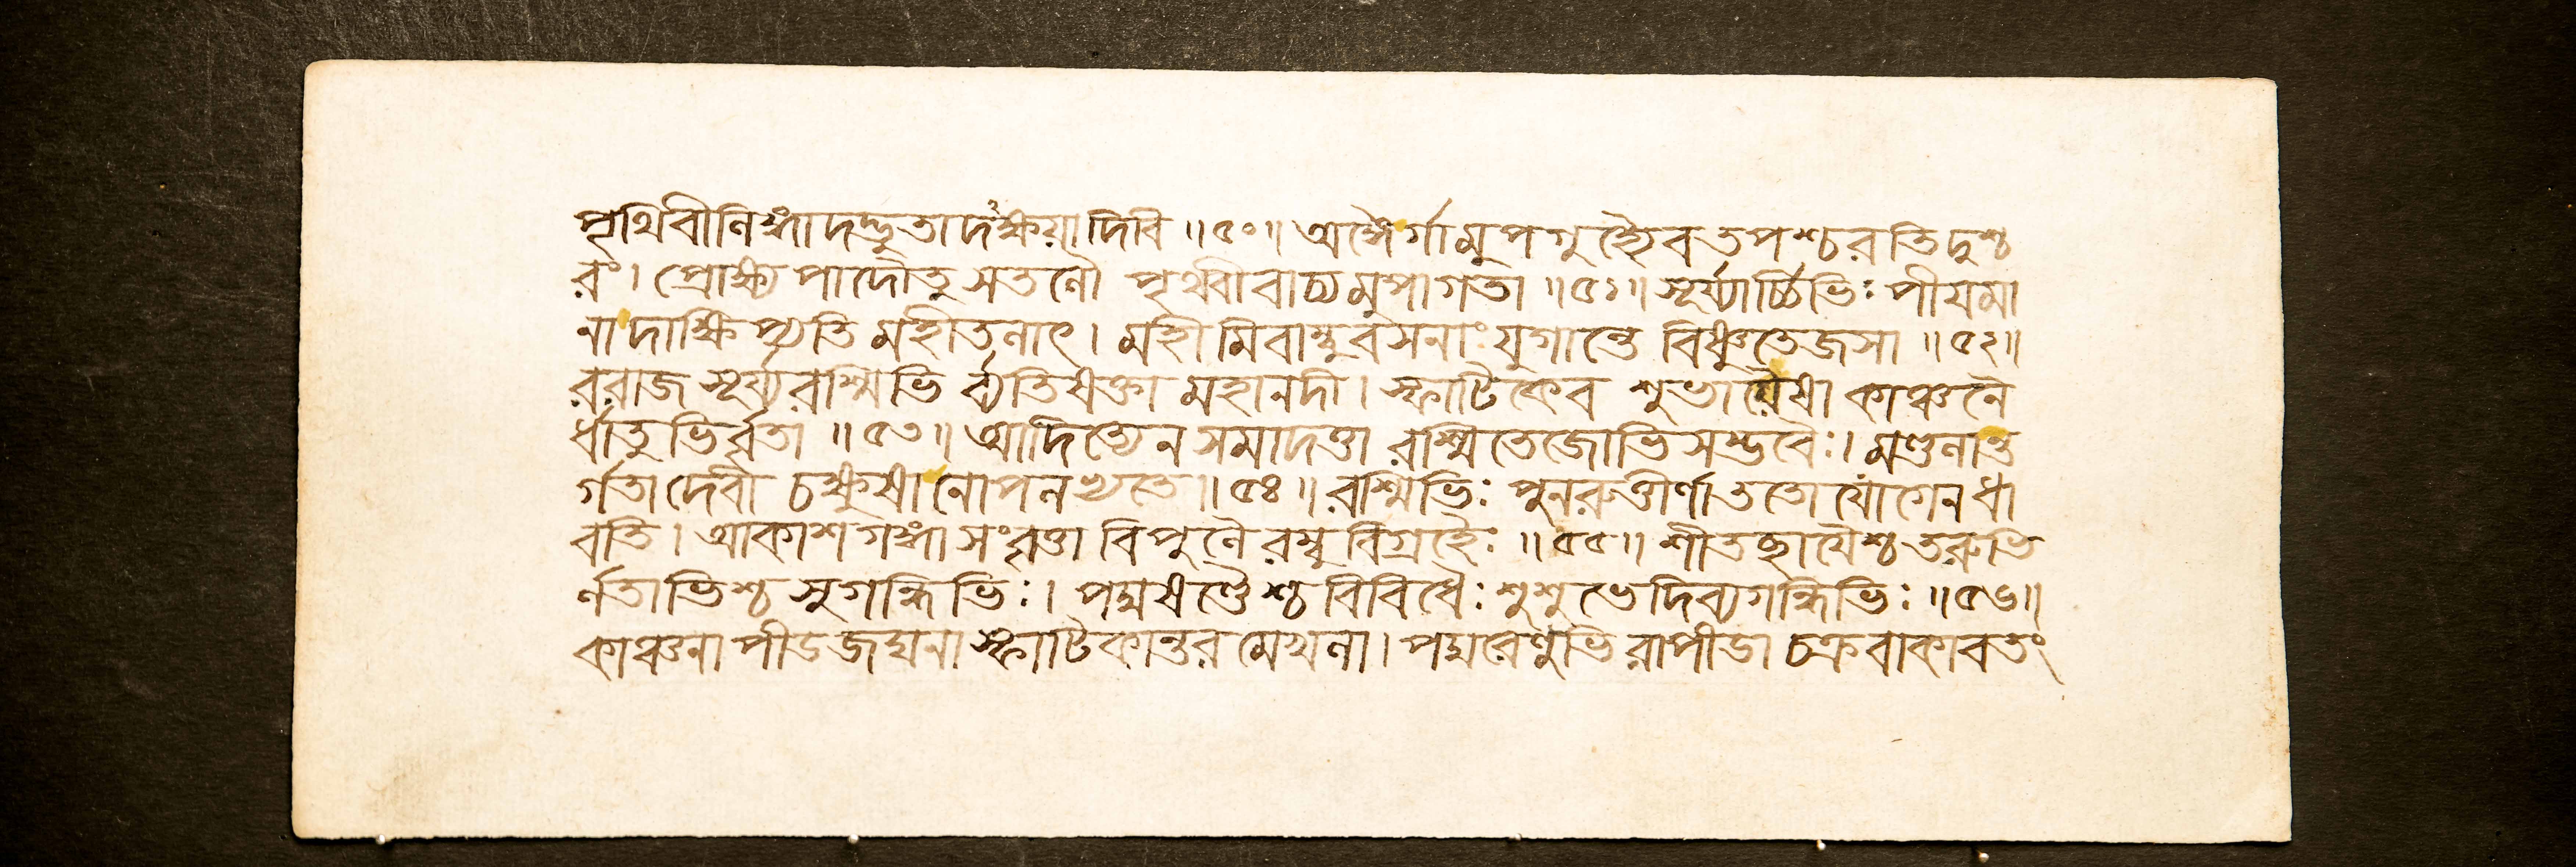 পৃথিবীনিহ্মাদদ্ভুতাদক্ষিয়াদিব ॥৫০॥ অঙ্গৈর্গামুপগুহ্যৈব তপশ্চরতি দুশ্চ
রং। প্রোক্ষ্য পাদৌ তু সততৌ পৃথিবী বাচ্যমুপাগতা ॥৫১॥ সূর্য্যার্চ্চিভিঃ পীয়মা
না দাক্ষিপ্যতি মহীতলাৎ। মহীমিবাম্বুবসনাং যুগান্তে বিষ্ণুতেজসা ॥৫২॥
ররাজ সূর্য্যরশ্মিভির্ব্যতিষক্তা মহানদী। স্ফাটিকেব শুভা যষ্টী কাঞ্চনৈ
র্ধাতুভির্বৃতা ॥৫৩॥ আদিত্যেন সমাদত্তা রশ্মিতেজোভিসম্ভবৈঃ। মণ্ডলান্ত
র্গতা দেবী চক্ষুষা নোপলক্ষ্যতে ॥৫৪॥ রশ্মিভিঃ পুনরুত্তীর্ণা ততো যোগেন ধা
বতি। আকাশগঙ্গা সংবৃত্তা বিপুলৈরম্বুবিগ্রহৈঃ ॥৫৫॥ শীতচ্ছায়ৈশ্চ তরুভি
র্লতাভিশ্চ সুগন্ধিভিঃ। পদ্মষণ্ডৈশ্চ বিবিধৈঃ শুশুভে দিব্যগন্ধিভিঃ ॥৫৬॥
কাঞ্চনাপীডজঘনা স্ফাটিকান্তরমেখলা। পদ্মরেণুভিরাপীডা চক্রবাকাবতং